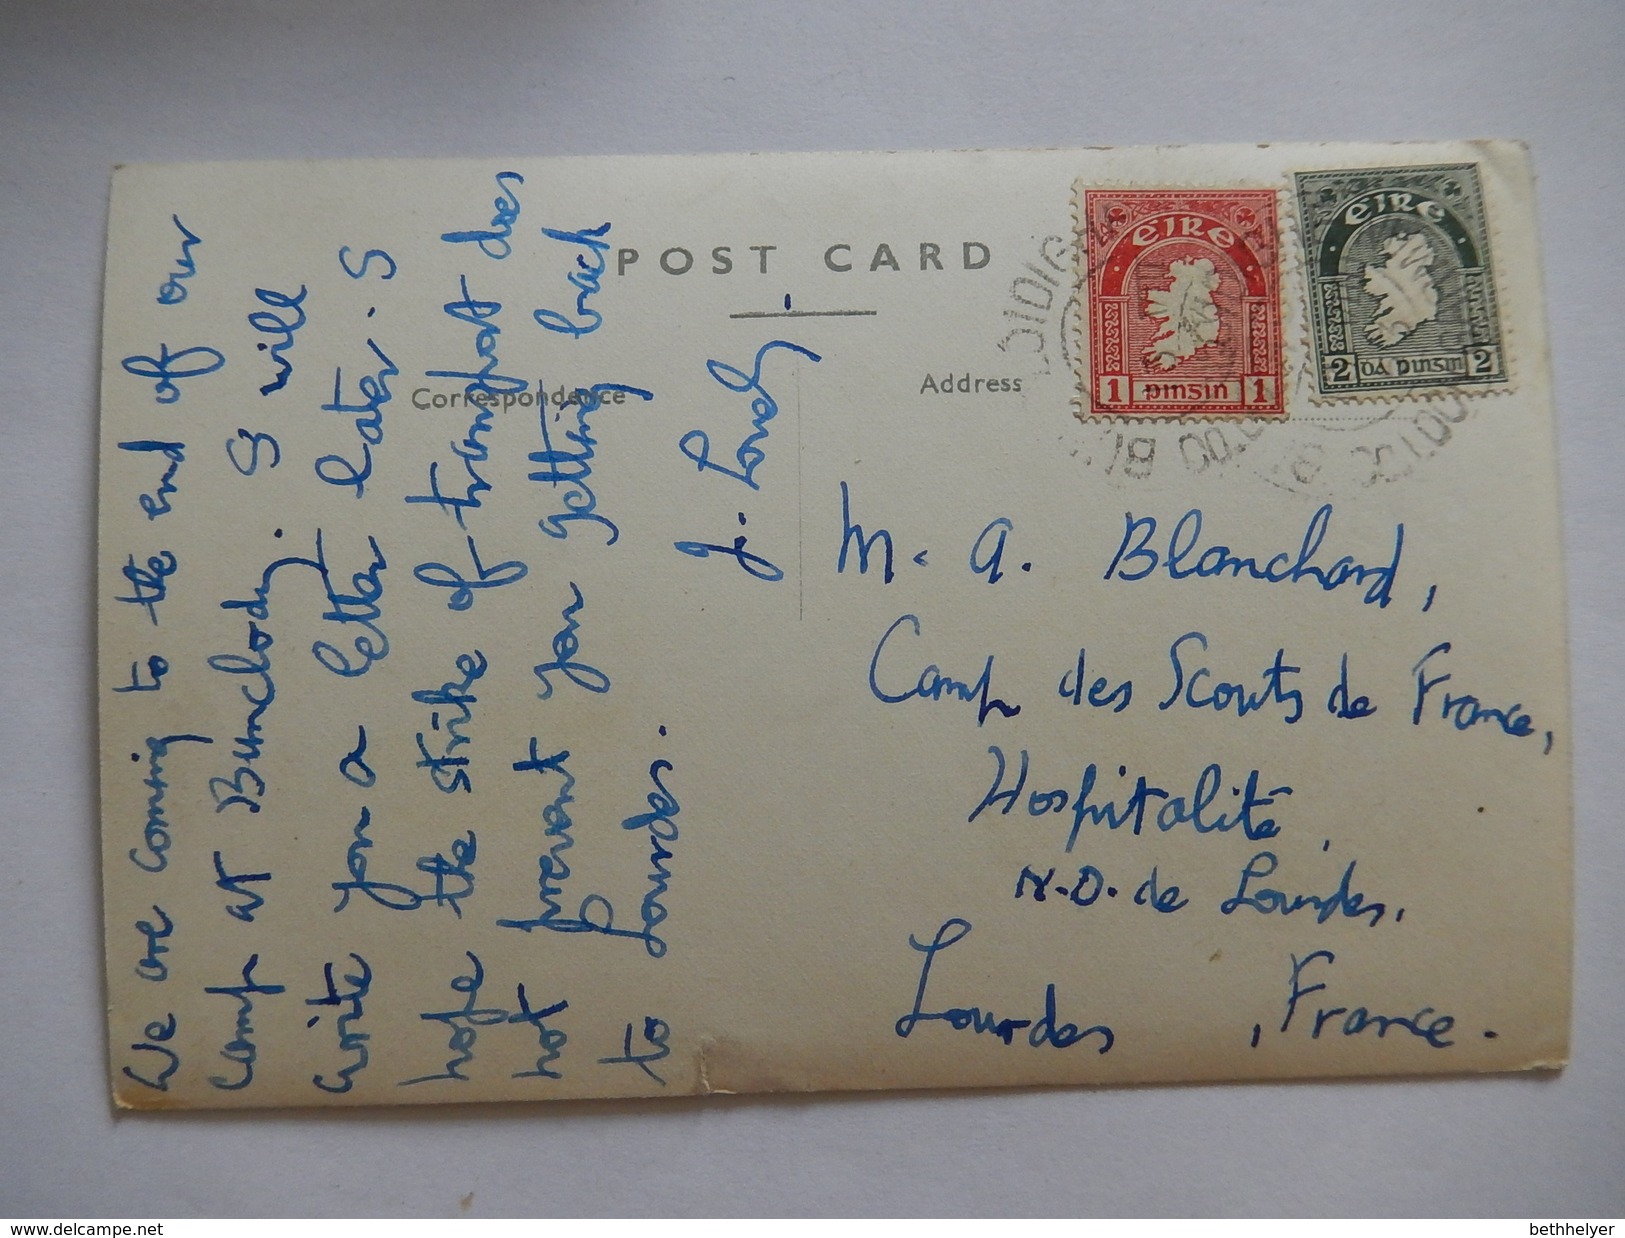 POST CARD
Correspondence
Address
We are coming to the end of our
camp at Bunclody. I will
write you a letter later. I
hope the strike of transport does
not prevent you getting back
to Lourdes.
M. A. Blanchard,
Camp des Scouts de France,
Hospitalité,
N.D. de Lourdes.
Lourdes, France.
éire
1 pinsin 1
éire
2 dá pinsin 2
bethhelyer